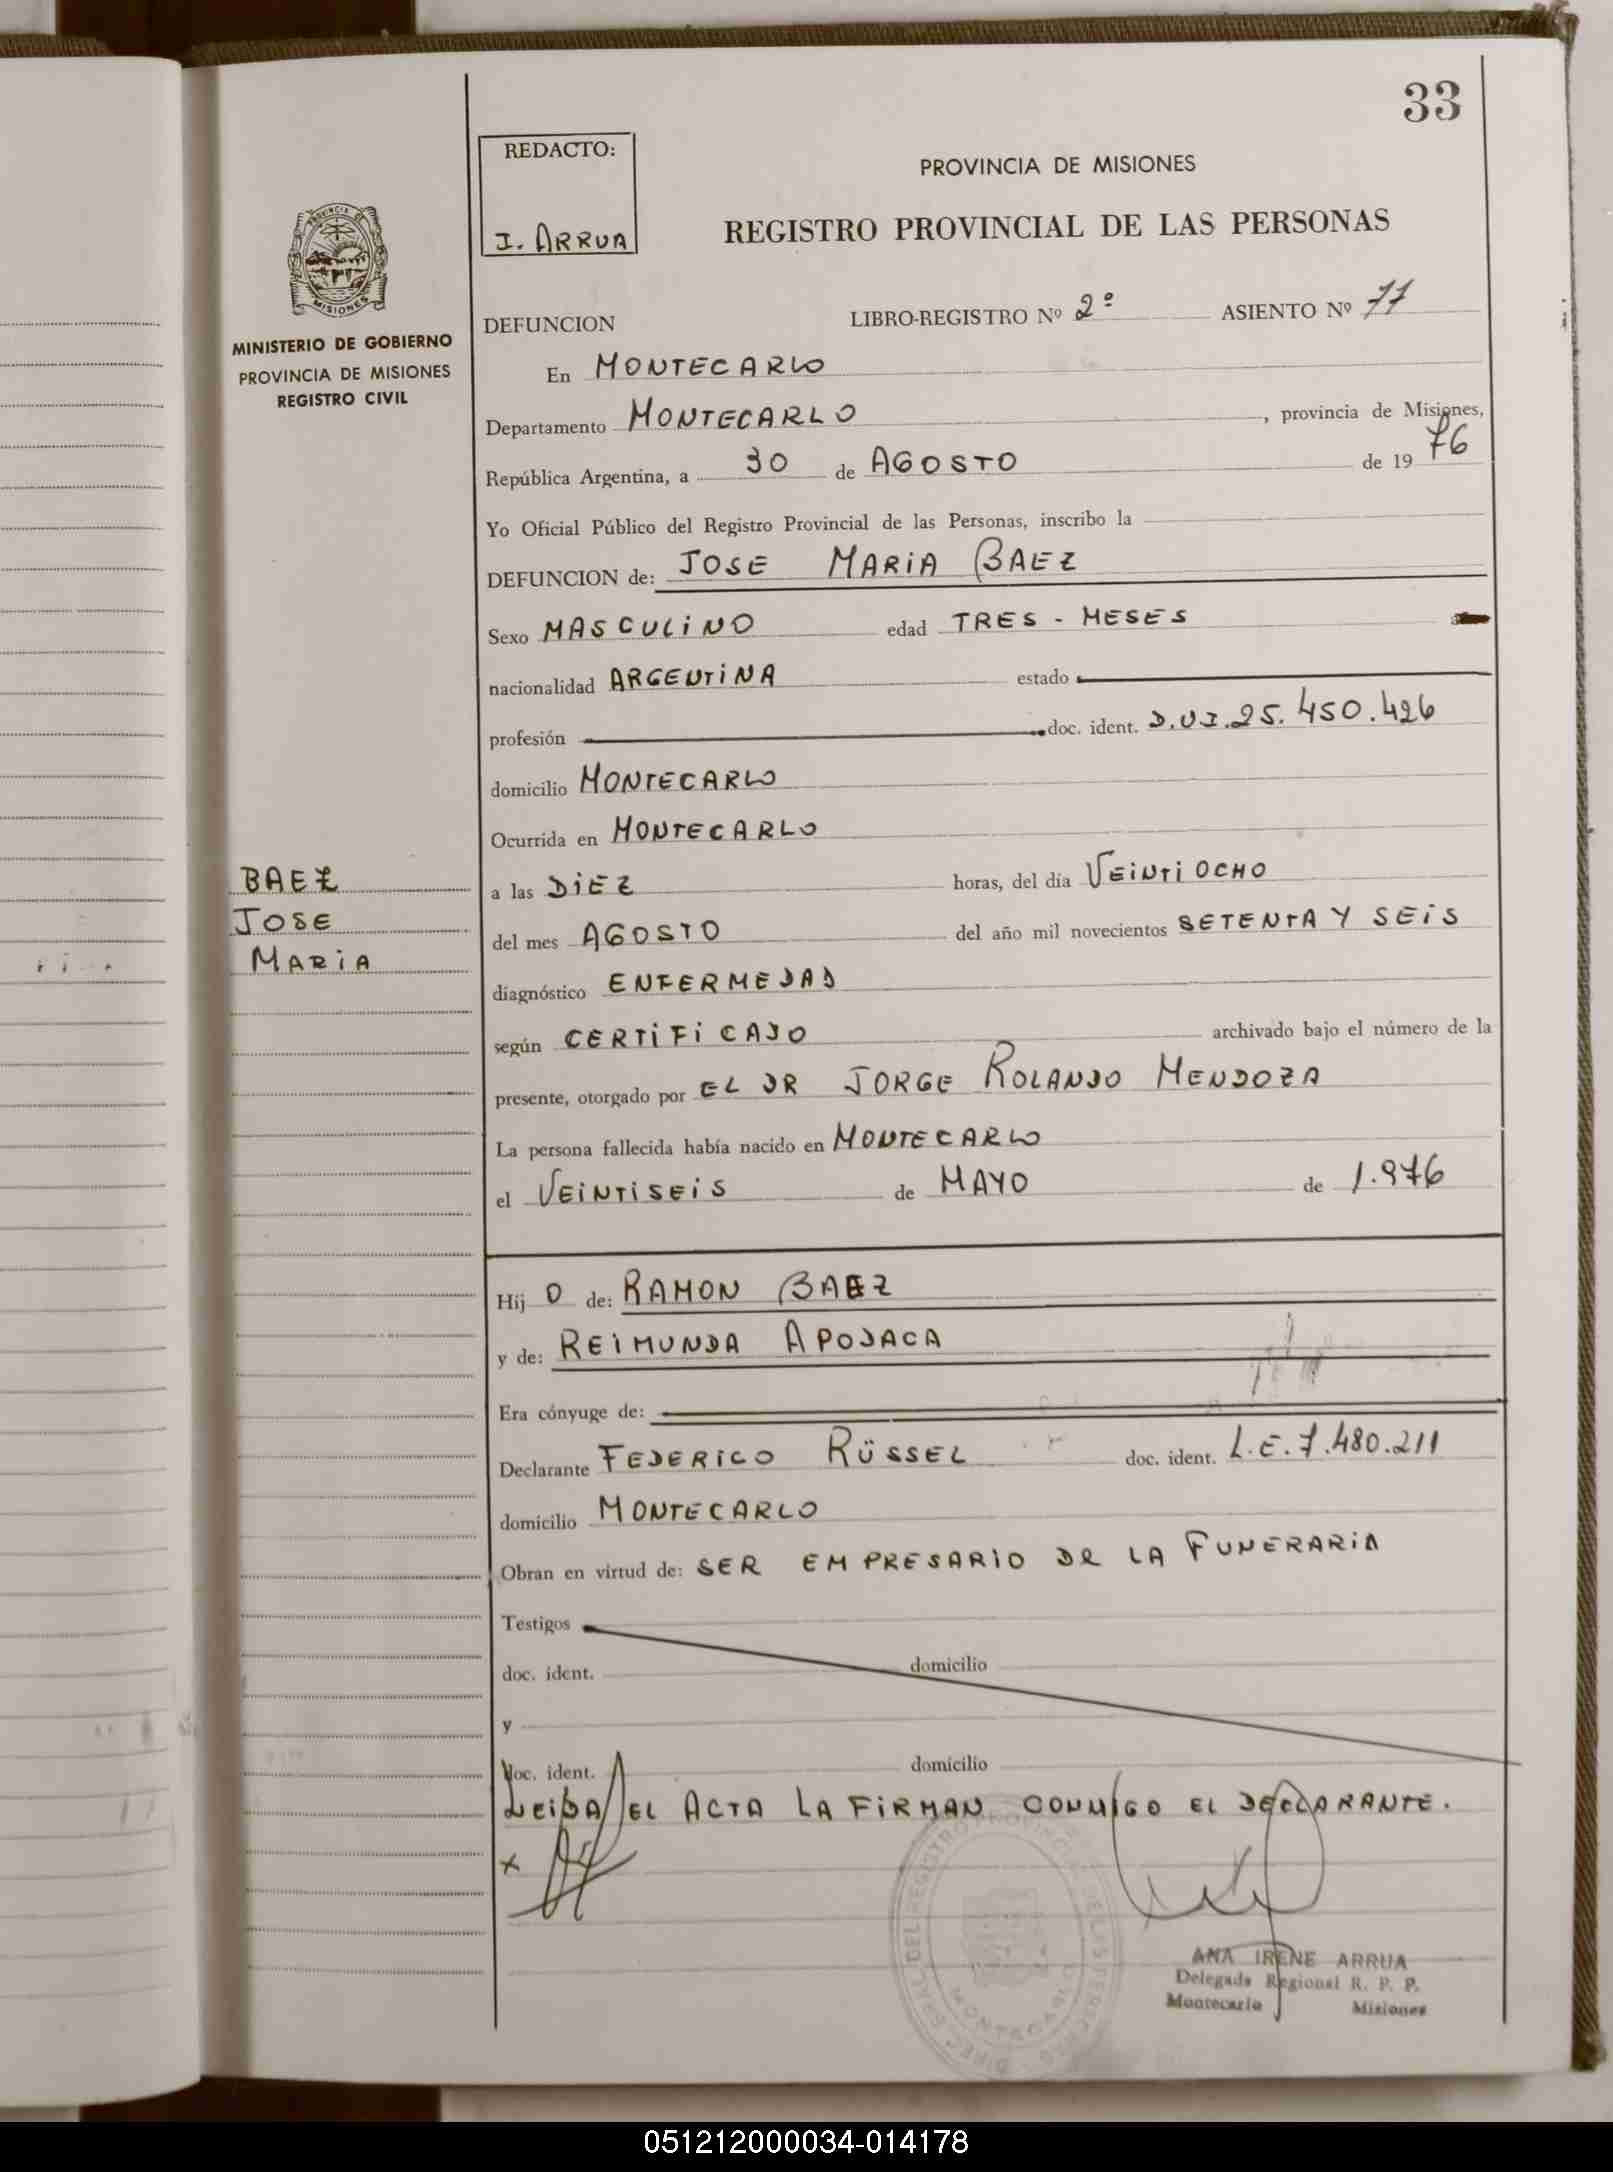 33
REDACTO:
I. ARRUA
PROVINCIA DE MISIONES
REGISTRO PROVINCIAL DE LAS PERSONAS
PROVINCIA DE
MISIONES
MINISTERIO DE GOBIERNO
PROVINCIA DE MISIONES
REGISTRO CIVIL
DEFUNCION LIBRO-REGISTRO Nº 2º ASIENTO Nº 77
En MONTECARLO
Departamento MONTECARLO, provincia de Misiones,
República Argentina, a 30 de AGOSTO de 1976
Yo Oficial Público del Registro Provincial de las Personas, inscribo la
DEFUNCION de: JOSE MARIA BAEZ
Sexo MASCULINO edad TRES - MESES
nacionalidad ARGENTINA estado
profesión doc. ident. D.U.I. 25.450.426
domicilio MONTECARLO
Ocurrida en MONTECARLO
BAEZ
JOSE
MARIA
a las DIEZ horas, del día VEINTIOCHO
del mes AGOSTO del año mil novecientos SETENTA Y SEIS
diagnóstico ENFERMEDAD
según CERTIFICADO archivado bajo el número de la
presente, otorgado por EL DR JORGE ROLANDO MENDOZA
La persona fallecida había nacido en MONTECARLO
el VEINTISEIS de MAYO de 1.976
Hij O de: RAMON BAEZ
y de: REIMUNDA APODACA
Era cónyuge de:
Declarante FEDERICO RÜSSEL doc. ident. L.E. 7.480.211
domicilio MONTECARLO
Obran en virtud de: SER EMPRESARIO DE LA FUNERARIA
Testigos
doc. ident. domicilio
y
doc. ident. domicilio
LEIDA EL ACTA LA FIRMAN CONMIGO EL DECLARANTE.
x
ANA IRENE ARRUA
Delegada Regional R. P. P.
Montecarlo Misiones
051212000034-014178